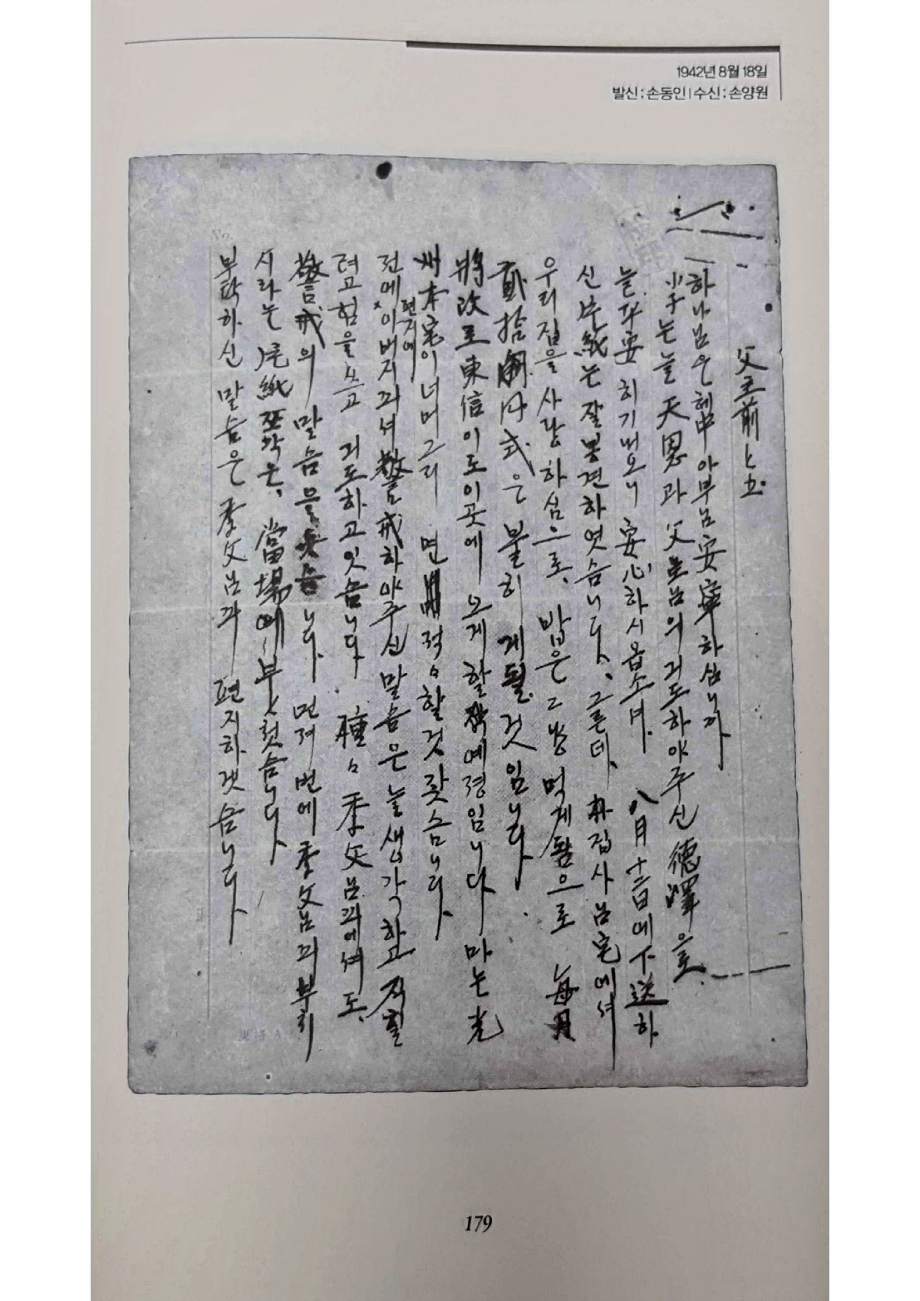 1942년 8월 18일
발신 : 손동인 | 수신 : 손양원
父主前上書
하나님 은혜中 아부님 安寧하심니까
小子는 늘 天恩과 父主님의 긔도하야주신 德澤으로
늘 平安히 기내오니 安心하시옵소셔. 八月十二日에 下送하
신 片紙는 잘 봉견하엿슴니다. 그른데, 朴집사님宅에셔
우리 집을 사랑하심으로, 밥은 그냥 먹게됨으로 每月
貳拾 式은 불히 게될 것임니다.
將次로 東信이도 이곳에 오게 할 예정임니다 마는 光
州本宅이 너머 그리 면 적々할 것 갓슴니다
전에 편지에 아버지끠셔 警戒하야주신 말슴은 늘 생각하고 직힐
려고 힘을 쓰고 긔도하고 잇슴니다. 種々 季父님끠에셔도,
警戒의 말슴을 니다. 먼저번에 季父님끠 부치
시라는 片紙 은, 當場에 부첫슴니다
부탁하신 말슴은 季父님끠 편지하겟슴니다
179